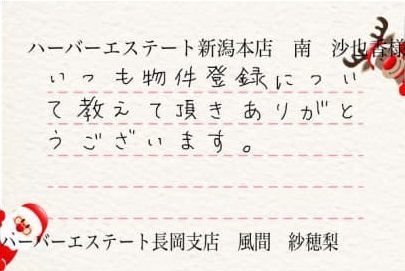 ハーバーエステート新潟本店　南　沙也香様
いつも物件登録につい
て教えて頂きありがと
うございます。
ハーバーエステート長岡支店　風間　紗穂梨